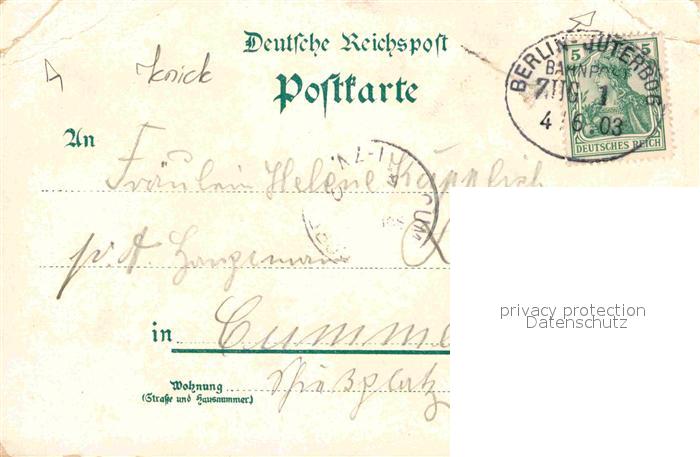 Deutsche Reichspost
knick
Postkarte
5 5
DEUTSCHES REICH
BERLIN-JÜTERBOG
BAHNPOST
ZUG 1
4 6 03
An
Fräulein Helene
p. A.
in Cumme
Wohnung
(Straße und Hausnummer)
Schießplatz
privacy protection
Datenschutz